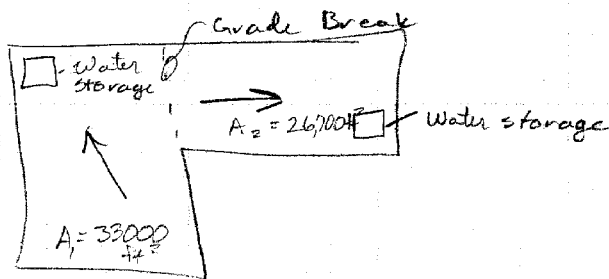 Grade Break
Water
storage
A₂ = 26,700 ft²
Water storage
A₁ = 33000
ft²